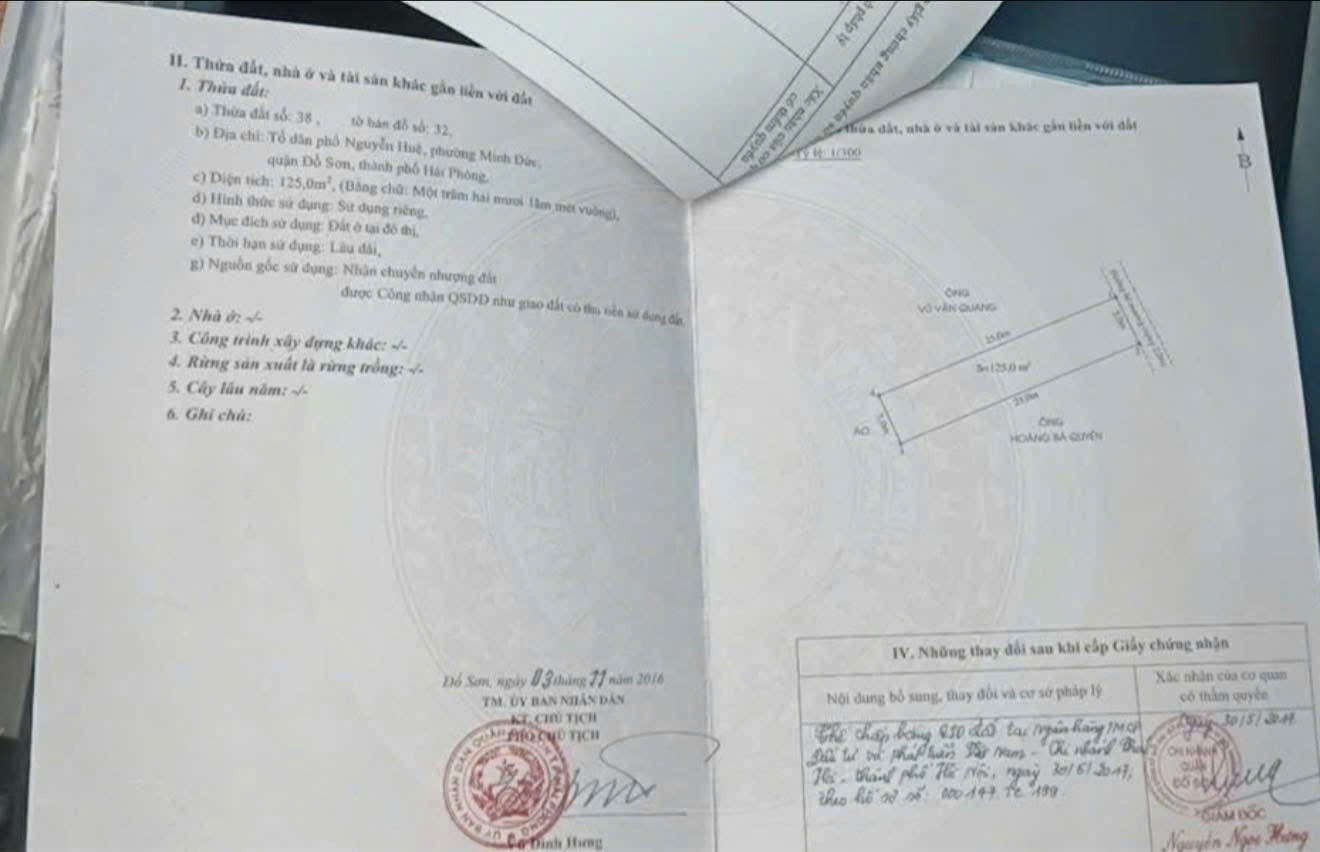 II. Thửa đất, nhà ở và tài sản khác gắn liền với đất
1. Thửa đất:
a) Thửa đất số: 38 , tờ bản đồ số: 32,
b) Địa chỉ: Tổ dân phố Nguyễn Huệ, phường Minh Đức,
quận Đồ Sơn, thành phố Hải Phòng,
c) Diện tích: 125,0m², (Bằng chữ: Một trăm hai mươi lăm mét vuông),
d) Hình thức sử dụng: Sử dụng riêng,
đ) Mục đích sử dụng: Đất ở tại đô thị,
e) Thời hạn sử dụng: Lâu dài,
g) Nguồn gốc sử dụng: Nhận chuyển nhượng đất
được Công nhận QSDĐ như giao đất có thu tiền sử dụng đất.
2. Nhà ở: -/-
3. Công trình xây dựng khác: -/-
4. Rừng sản xuất là rừng trồng: -/-
5. Cây lâu năm: -/-
6. Ghi chú:
Đồ Sơn, ngày 03 tháng 11 năm 2016
TM. ỦY BAN NHÂN DÂN
KT. CHỦ TỊCH
PHÓ CHỦ TỊCH
Đình Hưng
thửa đất, nhà ở và tài sản khác gắn liền với đất
lệ: 1/300
B
ÔNG
VÕ VĂN QUANG
25,0m
5,0m
S=125,0 m²
25,0m
5,0m
AO
ÔNG
HOÀNG BÁ QUYỀN
IV. Những thay đổi sau khi cấp Giấy chứng nhận
Nội dung bổ sung, thay đổi và cơ sở pháp lý
Xác nhận của cơ quan
có thẩm quyền
Thế chấp bằng QSD đất tại ngân hàng TMCP
Đầu tư và phát triển Việt Nam - Chi nhánh
thành phố Hà Nội, ngày 30/5/2017,
theo hồ sơ số: 000147.TC.199.
Ngày 30/5/2017
CHI NHÁNH
QUẬN
ĐỒ SƠN
GIÁM ĐỐC
Nguyễn Ngọc Hưng